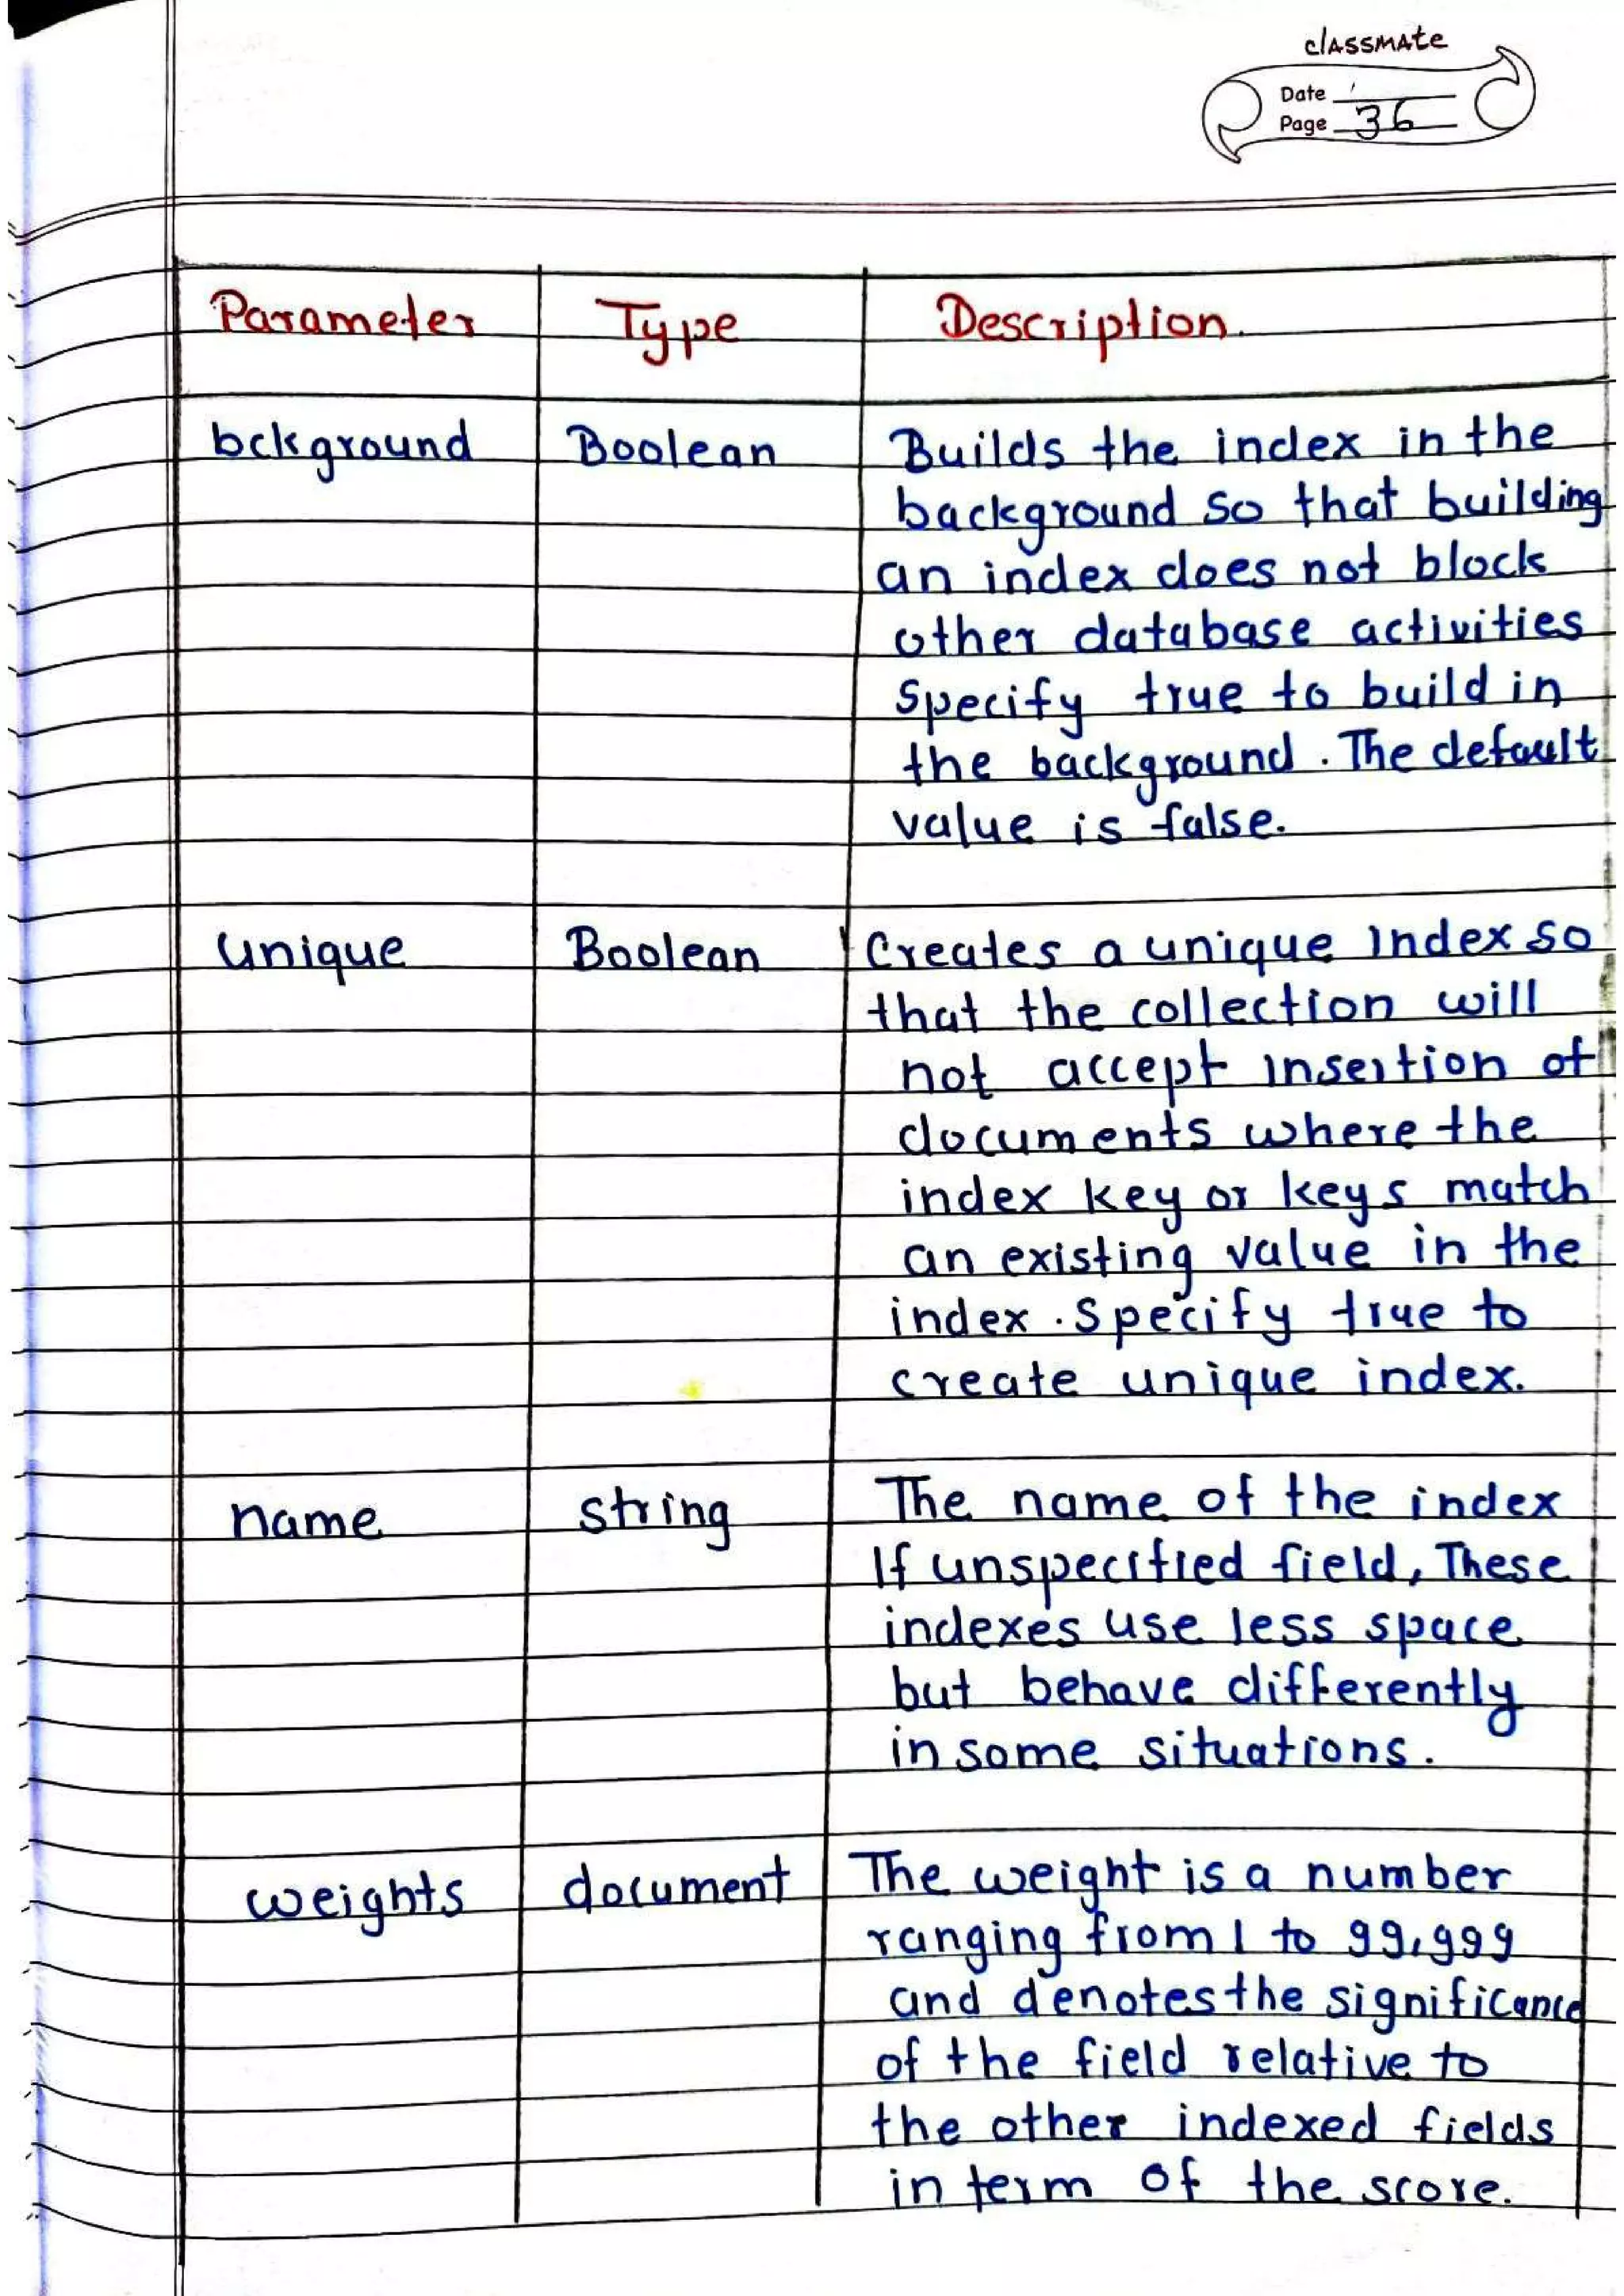 classmate
Date
Page 36
Parameter Type Description.
bckground Boolean Builds the index in the
background so that building
an index does not block
other database activities
specify true to build in
the background. The default
value is false.
unique Boolean Creates a unique Index so
that the collection will
not accept insertion of
documents where the
index key or keys match
an existing value in the
index. Specify true to
create unique index.
name string The name of the index
If unspecified field, These
indexes use less space
but behave differently
in some situations.
weights document The weight is a number
ranging from 1 to 99,999
and denotes the significance
of the field relative to
the other indexed fields
in term of the score.